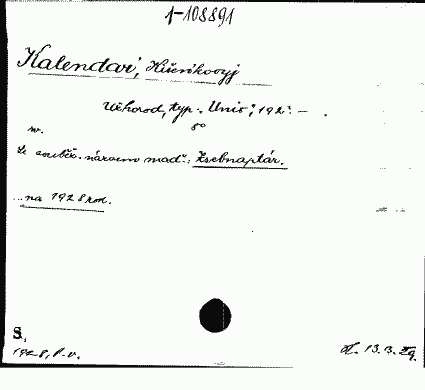 1-108891
Kalendař, Kišeňkovyj
Užhorod, typ. "Unio", 192 . – .
8°
w.
Se souběž. názvem maď.: Zsebnaptár.
...na 1928 rok.
S,
1928, P. v.
13.3.